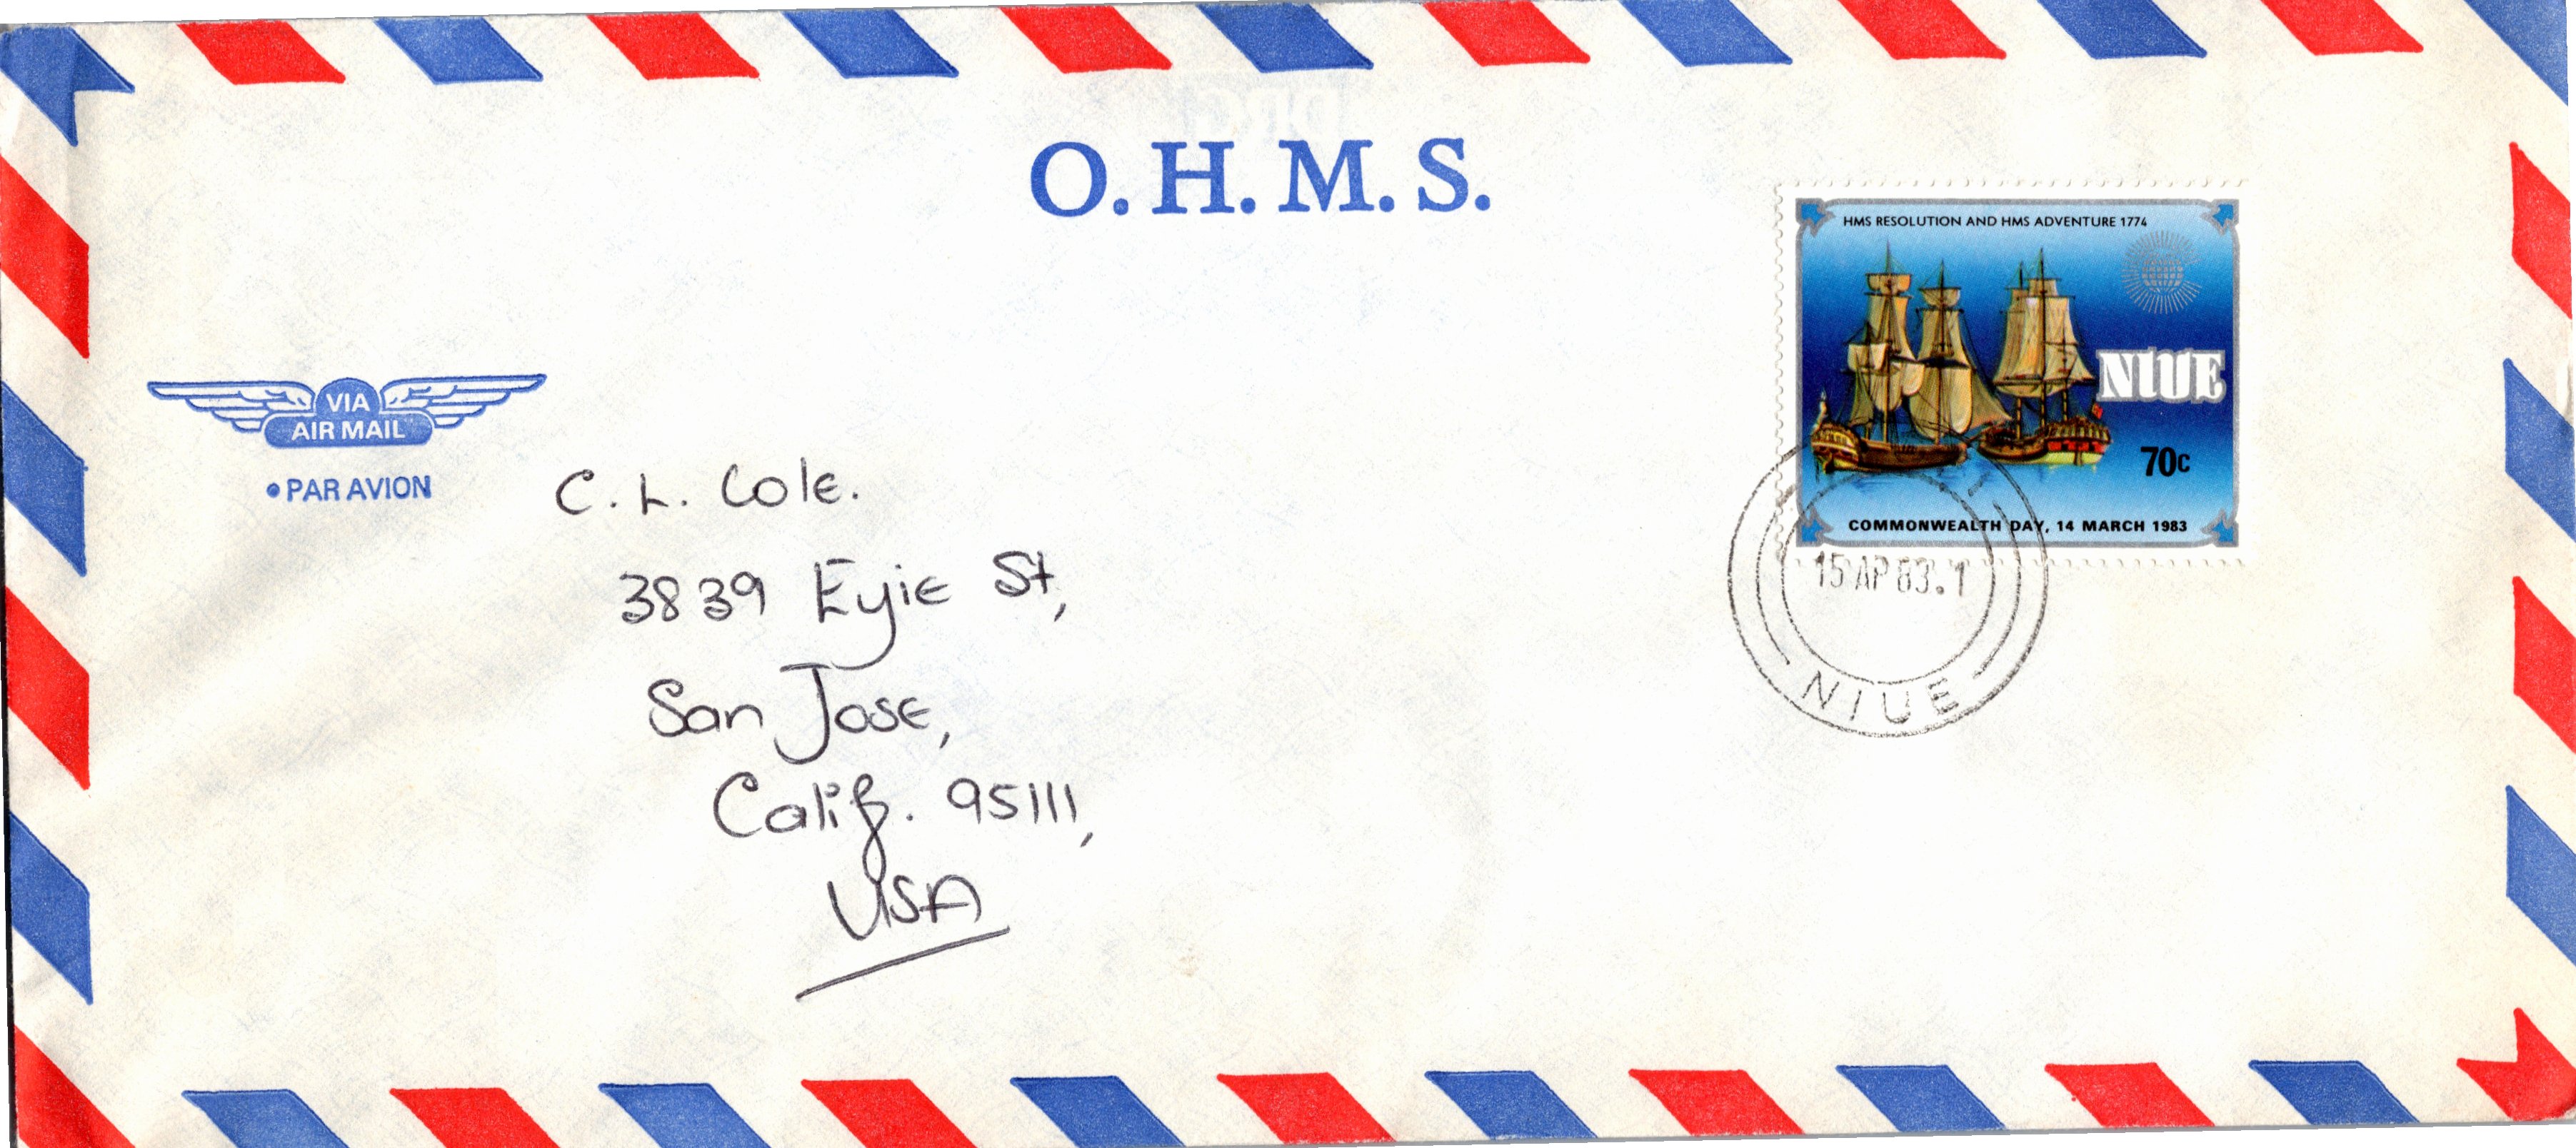 O.H.M.S.
HMS RESOLUTION AND HMS ADVENTURE 1774
NIUE
70c
COMMONWEALTH DAY, 14 MARCH 1983
15 AP 83.1
NIUE
VIA
AIR MAIL
• PAR AVION
C. L. Cole.
3839 Eyie St,
San Jose,
Calif. 95111,
USA